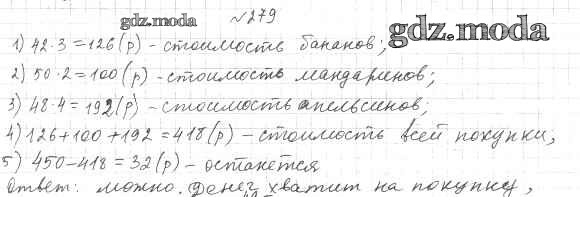 №279
gdz.moda
gdz.moda
1) 42·3=126(р) - стоимость бананов;
2) 50·2=100(р) - стоимость мандаринов;
3) 48·4=192(р) - стоимость апельсинов;
4) 126+100+192=418(р) - стоимость всей покупки,
5) 450-418=32(р) - останется
Ответ: можно. денег хватит на покупку,